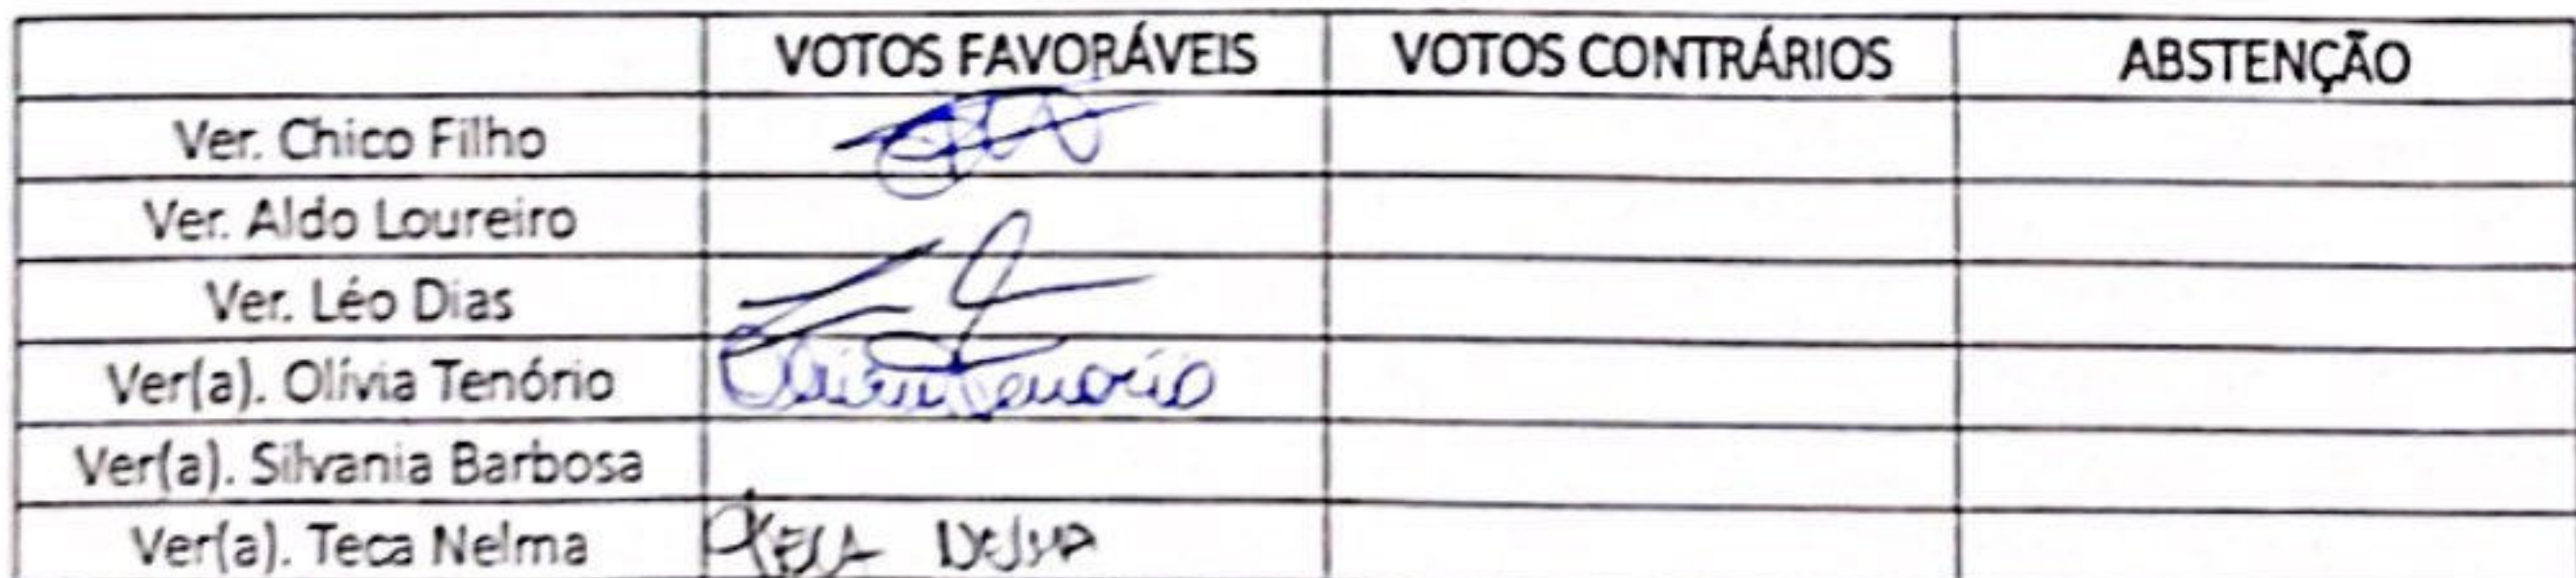 VOTOS FAVORÁVEIS VOTOS CONTRÁRIOS ABSTENÇÃO
Ver. Chico Filho
Ver. Aldo Loureiro
Ver. Léo Dias
Ver(a). Olívia Tenório Olívia Tenorio
Ver(a). Silvania Barbosa
Ver(a). Teca Nelma Teca Nelma